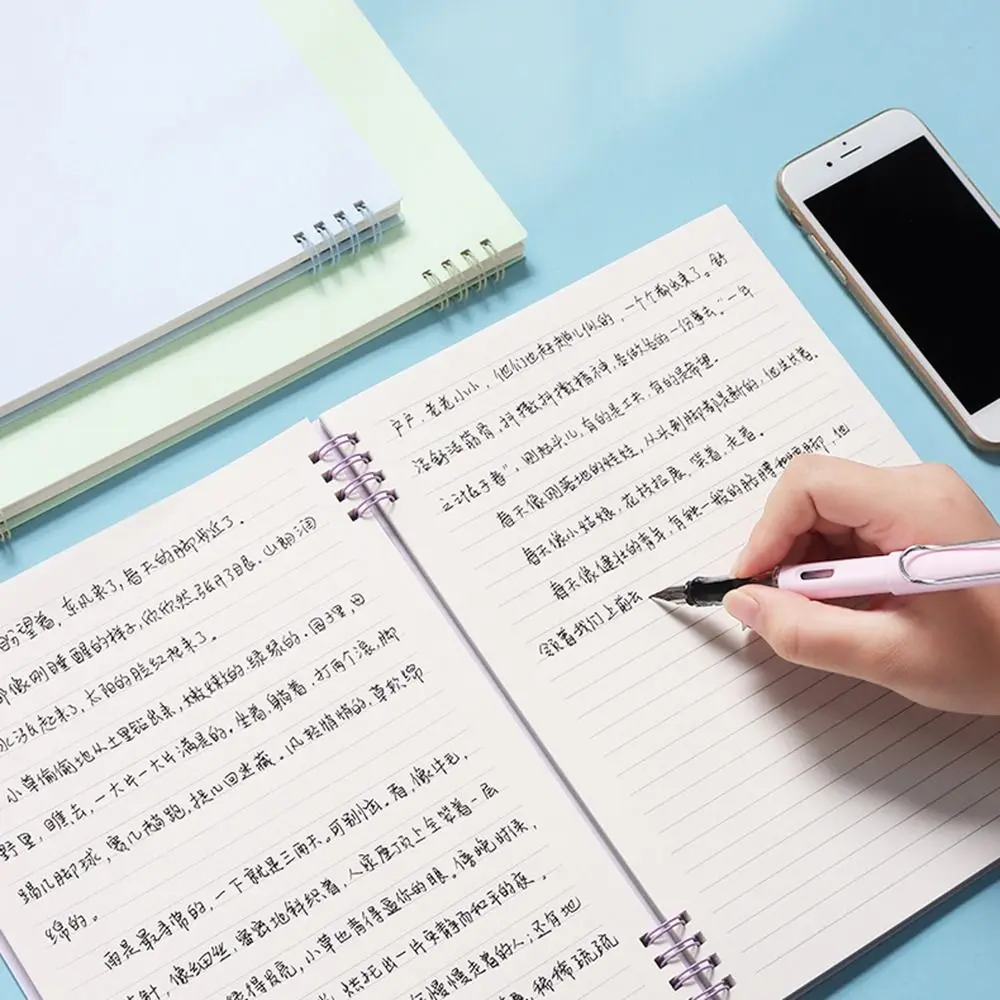 的盼望着，东风来了，春天的脚步近了。
都像刚睡醒的样子，欣欣然张开了眼。山朗润
水涨起来了，太阳的脸红起来了。
小草偷偷地从土里钻出来，嫩嫩的，绿绿的。园子里，田
野里，瞧去，一大片一大片满是的。坐着，躺着，打两个滚，脚
踢几脚球，赛几趟跑，捉几回迷藏。风轻悄悄的，草软绵
绵的。
雨是最寻常的，一下就是三两天。可别恼。看，像牛毛，
针，像细丝，密密地斜织着，人家屋顶上全笼着一层
绿得发亮，小草也青得逼你的眼。傍晚时候，
烘托出一片安静而和平的夜。
慢慢走着的人；还有地
稀稀疏疏
户户，老老小小，他们也赶趟儿似的，一个个都出来了。舒
活舒活筋骨，抖擞抖擞精神，各做各的一份事去。"一年
之计在于春"，刚起头儿，有的是工夫，有的是希望。
春天像刚落地的娃娃，从头到脚都是新的，他生长着。
春天像小姑娘，花枝招展，笑着，走着。
春天像健壮的青年，有铁一般的胳膊和腰脚，他
领着我们上前去